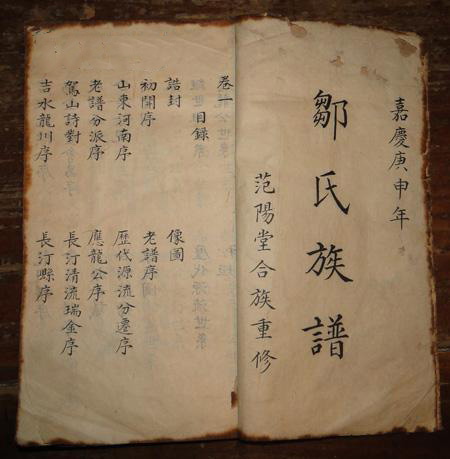 嘉慶庚申年
鄒氏族譜
范陽堂合族重修
卷
目錄
誥封 像圖
初開序 老譜序
山東河南序 歷代源流分遷序
老譜分派序 應龍公序
駕山詩對 長汀清流瑞金序
吉水龍川序 長汀縣序